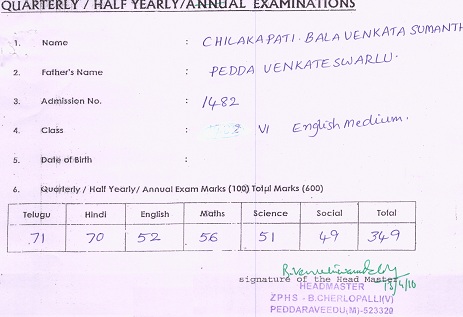 QUARTERLY / HALF YEARLY/ANNUAL EXAMINATIONS
1. Name : CHILAKAPATI. BALA VENKATA SUMANTH
2. Father's Name : PEDDA VENKATESWARLU.
3. Admission No. : 1482
4. Class : VI English Medium.
5. Date of Birth :
6. Quarterly / Half Yearly/ Annual Exam Marks (100) Total Marks (600)
Telugu Hindi English Maths Science Social Total
71 70 52 56 51 49 349
signature of the Head Master
HEADMASTER
ZPHS - B.CHERLOPALLI(V)
PEDDARAVEEDU(M)-523320